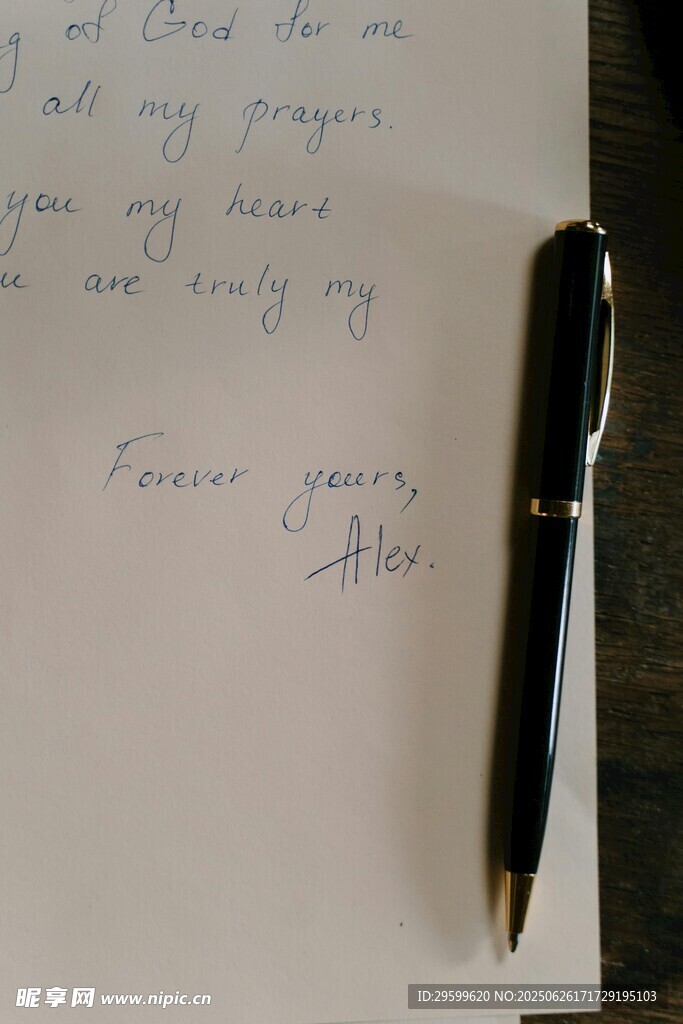 g of God for me
all my prayers.
you my heart
u are truly my
Forever yours,
Alex.
昵享网 www.nipic.cn
ID:29599620 NO:20250626171729195103